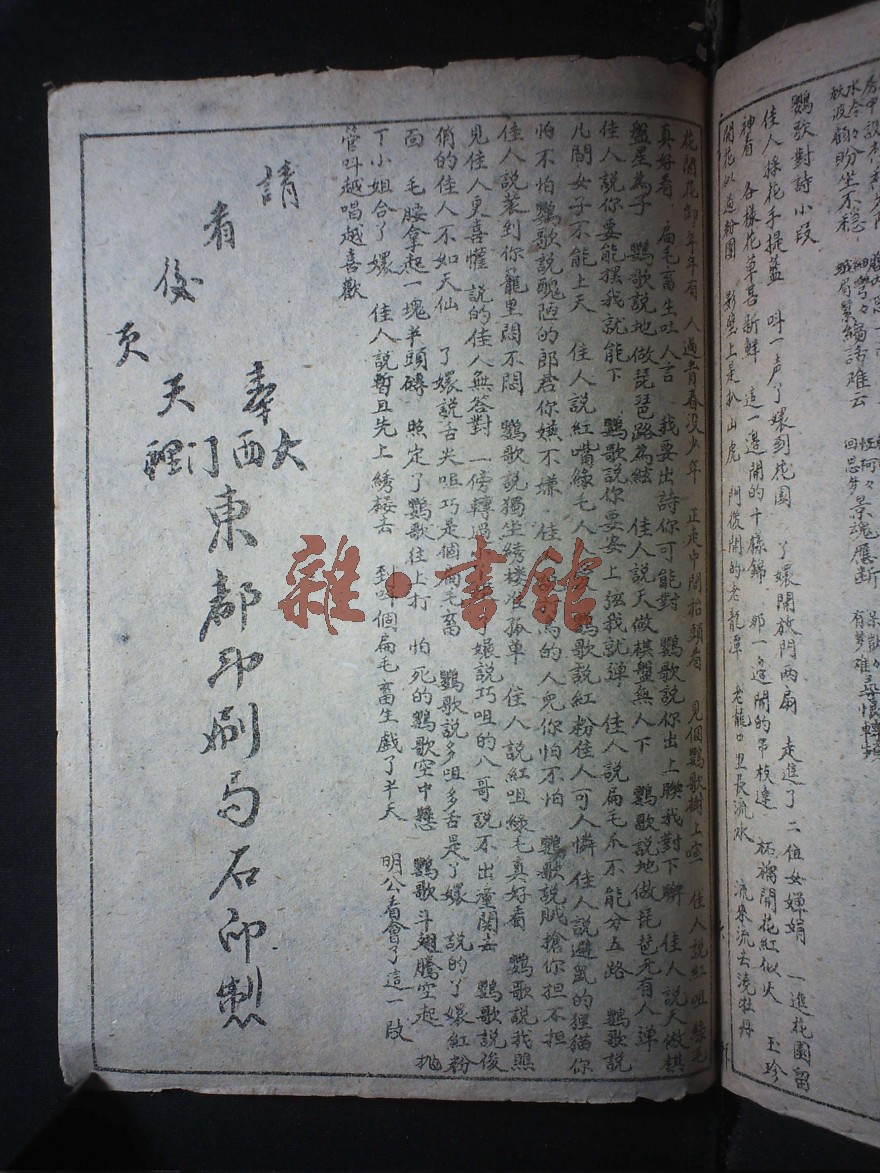 鸚歌對詩小段
佳人採花手提籃　叫一声了嬛到花園　了嬛開放門兩扇　走進了二位女嬋娟　一進花園留
神看　各樣花草喜新鮮　這一邊開的十樣錦　那一邊開的吊枝蓮　石榴開花紅似火　玉珍
開花似白粉團　影壁上是扒山虎　門後開的老龍潭　老龍口里長流水　流來流去澆牡丹
花開花卸年年有　人過青春沒少年　正走中間抬頭看　見個鸚歌樹上喧　佳人說紅咀綠毛
真好看　扁毛畜生吐人言　我要出詩你可能對　鸚歌說你出上聯我對下聯　佳人說天做棋
盤星為子　鸚歌說地做琵琶路為絃　佳人說天做棋盤無人下　鸚歌說地做琵琶无有人弹
佳人說你要能擺我就能下　鸚歌說你要安上弦我就弹　佳人說扁毛爪不能分五路　鸚歌說
凡間女子不能上天　佳人說紅嘴綠毛人　鸚歌說紅粉佳人可人憐　佳人說避鼠的狸猫你
怕不怕　鸚歌說醜陋的郎君你嫌不嫌　佳　的人兒你怕不怕　鸚歌說賊搶你担不担
佳人說裝到你籠里悶不悶　鸚歌說獨坐綉楼准孤单　佳人說紅咀綠毛真好看　鸚歌說我照
見佳人更喜懽　說的佳人無答對　一傍轉過　了嬛說巧咀的八哥說不出潼関去　鸚歌說俊
俏的佳人不如天仙　了嬛說舌尖咀巧是個扁毛畜　鸚歌說多咀多舌是了嬛　說的了嬛紅粉
面　毛腰拿起一塊半頭磚　照定了鸚歌往上打　怕死的鸚歌空中懸　鸚歌斗翅騰空起　抛
了小姐合了嬛　佳人說暫且先上綉楼去　到叫個扁毛畜生戲了半天　明公看會了這一段
管叫越唱越喜歡
請
看
後
頁
奉天
大西门裡
東都印刷局石印製
雜·書館